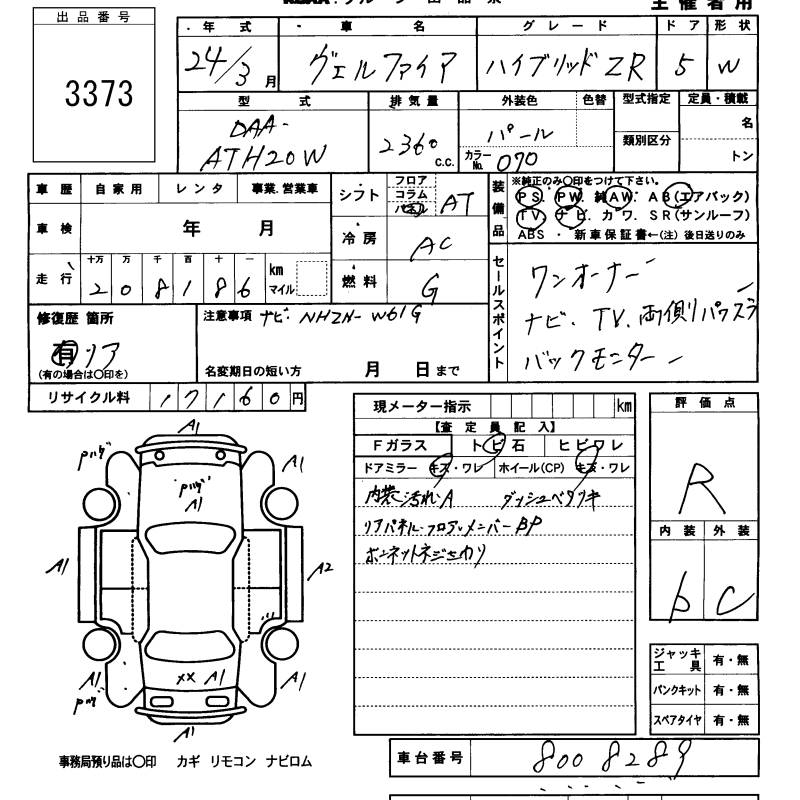 出品番号
3373
主催者用
年式 車名 グレード ドア 形状
24/3月 ヴェルファイア ハイブリッドZR 5 W
型式 排気量 外装色 色替 型式指定 定員・積載
DAA-
ATH20W 2360 c.c. パール
カラーNo. 070 類別区分 名
トン
車歴 自家用 レンタ 事業.営業車
シフト フロア コラム パネル AT
車検 年 月
冷房 AC
走行 十万 万 千 百 十 一
2 0 8 1 8 6 km マイル
燃料 G
装備品
※純正のみ○印をつけて下さい。
PS. PW. 純AW. AB(エアバック)
TV. ナビ. カワ. SR(サンルーフ)
ABS ・ 新車保証書←(注) 後日送りのみ
セールスポイント
ワンオーナー
ナビ. TV. 両側パワスラ
バックモニター
修復歴 箇所
有 リア
(有の場合は○印を)
注意事項 ナビ: NHZN-W61G
名変期日の短い方 月 日まで
リサイクル料 17160円
現メーター指示 km
【査定員記入】
Fガラス トビ石 ヒビワレ
ドアミラー キズ・ワレ ホイール(CP) キズ・ワレ
内装汚れA ダッシュベタツキ
リアパネル.フロア.メンバーBP
ボンネットネジさわり
評価点
R
内装 外装
b C
ジャッキ工具 有・無
パンクキット 有・無
スペアタイヤ 有・無
A1
A1
A1
A1
A2
A1
XX A1
A1
A1
事務局預り品は○印 カギ リモコン ナビロム
車台番号 8008289